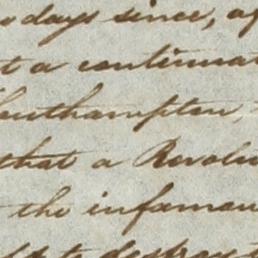 days since, a
t a continua
Southampton,
that a Revolu
the infamou
to destroy